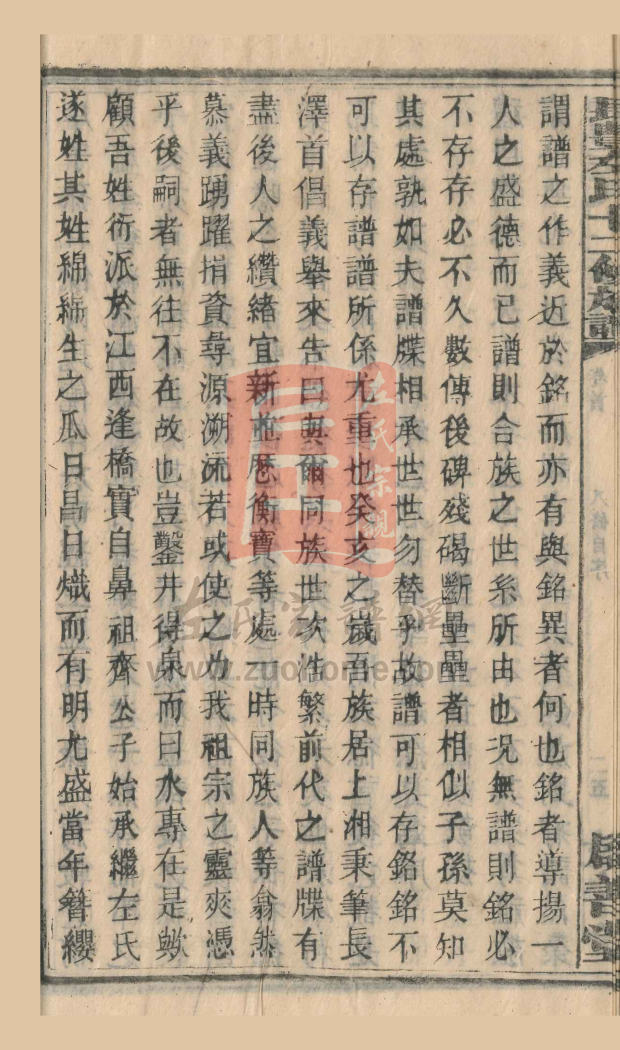 謂譜之作義近於銘而亦有與銘異者何也銘者導揚一
人之盛德而已譜則合族之世系所由也况無譜則銘必
不存存必不久數傳後碑殘碣斷壘壘者相似子孫莫知
其處孰如夫譜牒相承世世勿替乎故譜可以存銘銘不
可以存譜譜所係尤重也癸亥之歲吾族居上湘秉筆長
澤首倡義舉來告曰與爾同族世次浩繁前代之譜牒有
盡後人之纘緒宜新並懸衡寶等處 時同族人等翕然
慕義踴躍捐資尋源溯流若或使之力我祖宗之靈爽憑
乎後嗣者無往不在故也豈鑿井得泉而曰水專在是歟
顧吾姓衍派於江西逢橋實自鼻祖齊公子始承繼左氏
遂姓其姓綿綿生之瓜日昌日熾而有明尤盛當年簪纓
左氏十二修族譜
卷首
八修自序
二五
善堂
左氏宗親
左氏宗譜網
www.zuohome.com